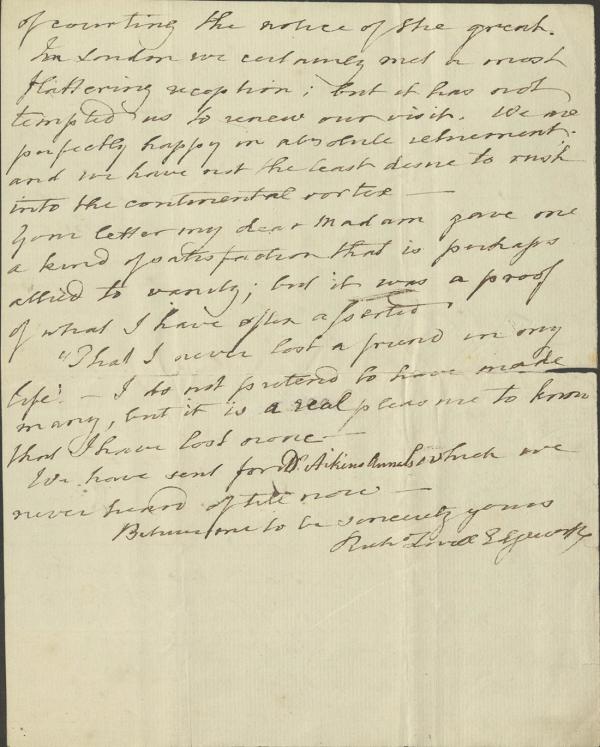 of courting the notice of the great.
In London we certainly met a most
flattering reception; but it has not
tempted us to renew our visit. We are
perfectly happy in absolute retirement.
and we have not the least desire to rush
into the continental vortex —
Your letter my dear Madam gave me
a kind of satisfaction that is perhaps
allied to vanity; but it was a proof
of what I have often asserted
"That I never lost a friend in my
life." — I do not pretend to have made
many, but it is a real pleasure to know
that I have lost none —
We have sent for Dr. Aikins Annals which we
never heard of till now —
Believe me to be sincerely yours
Richd Lovell Edgeworth